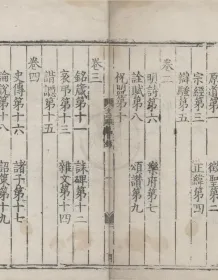 原道第一　徵聖第二
宗經第三　正緯第四
辯騷第五
卷二
明詩第六　樂府第七
詮賦第八　頌讚第九
祝盟第十
卷三
銘箴第十一　誄碑第十二
哀弔第十三　雜文第十四
諧讔第十五
卷四
史傳第十六　諸子第十七
論說第十八　詔策第十九